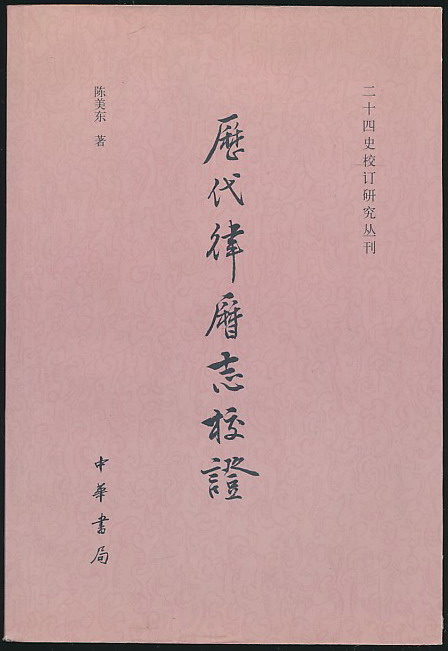 二十四史校订研究丛刊
歷代律曆志校證
陈美东 著
中華書局